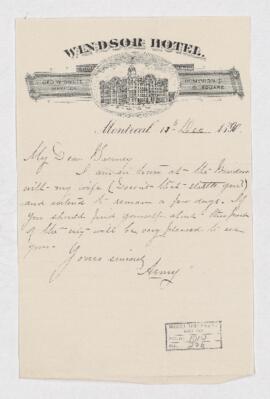 WINDSOR HOTEL.
GEO. W. SWETT
MANAGER
DOMINION
SQUARE
Montreal 13th Dec 1890
My Dear Burney
I am in town at the Windsor
with my wife (
and intend to remain a few days. If
you should find yourself about this part
of the city will be very pleased to see
you.
Yours sincerely